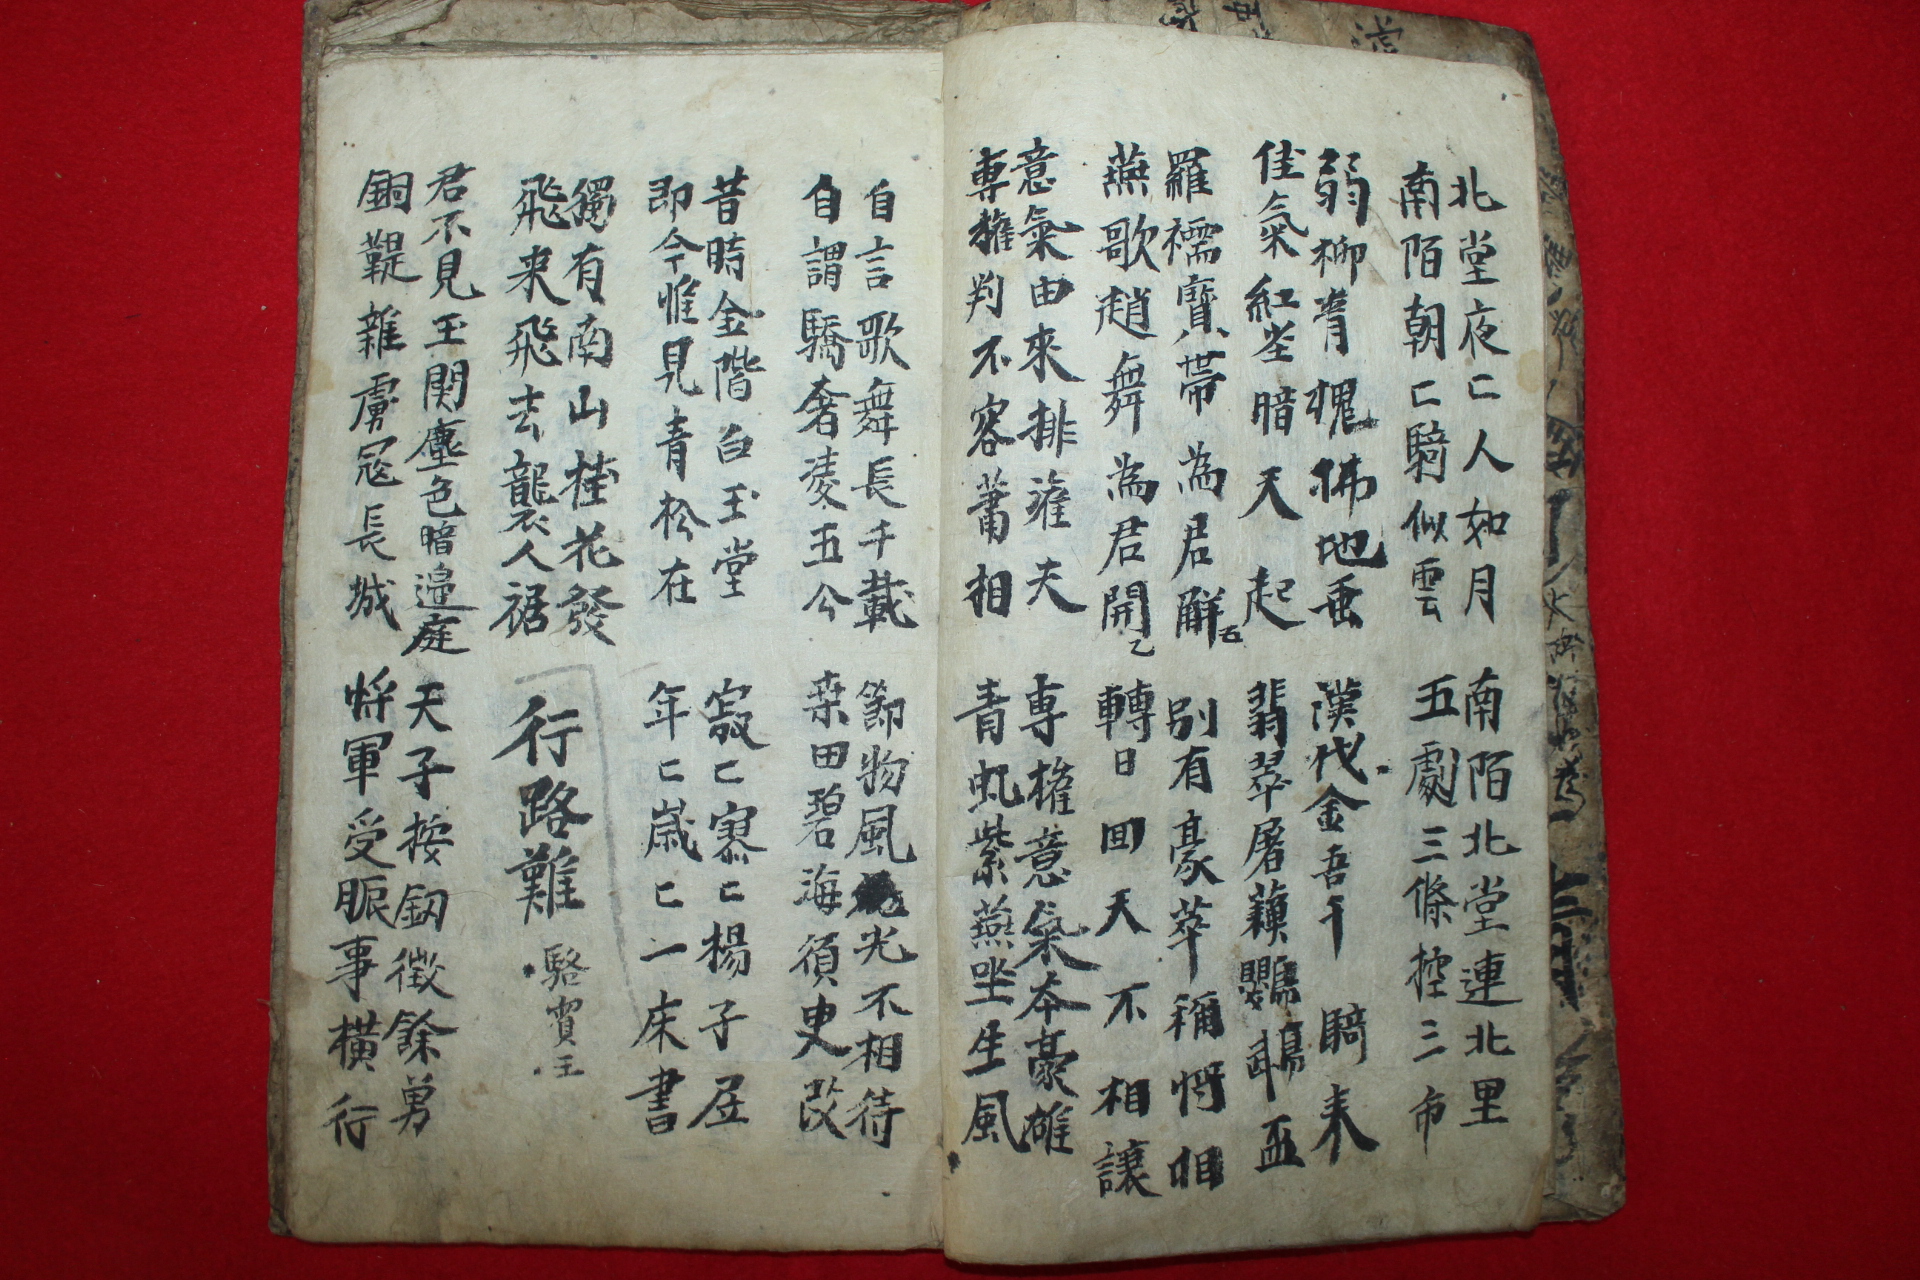 北堂夜〻人如月
南陌朝〻騎似雲
南陌北堂連北里
五劇三條控三市
弱柳青槐拂地垂
佳氣紅塵暗天起
漢代金吾千騎来
翡翠屠蘓鸚鵡盃
羅襦寶帶為君解
燕歌趙舞為君開
別有豪華稱將相
轉日回天不相讓
意氣由來排灌夫
專權判不容蕭相
專權意氣本豪雄
青虬紫燕坐生風
自言歌舞長千載
自謂驕奢凌五公
節物風光不相待
桑田碧海須臾改
昔時金階白玉堂
即今惟見青松在
寂〻寥〻楊子居
年〻歲〻一床書
獨有南山桂花發
飛来飛去襲人裾
行路難 駱賓王
君不見玉関塵色暗邊庭
銅鞮雜虜寇長城
天子按釖徵餘勇
將軍受脤事橫行